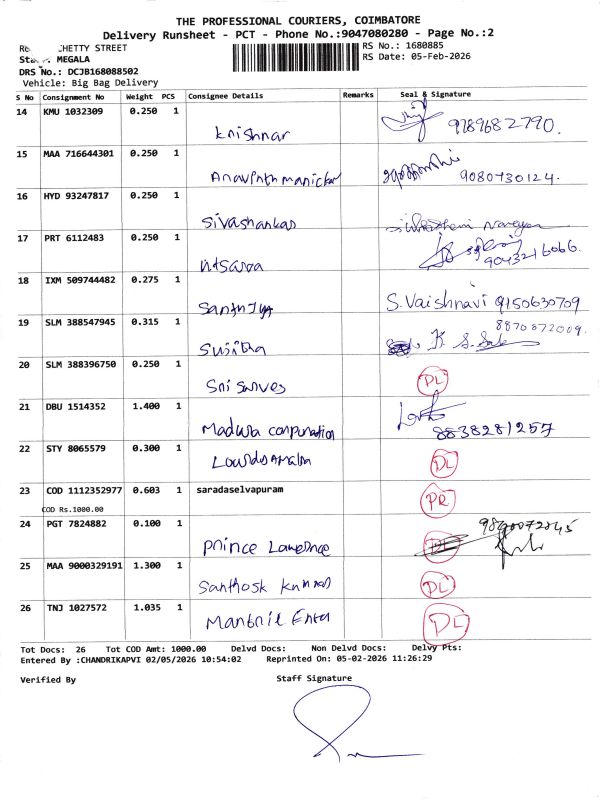 THE PROFESSIONAL COURIERS, COIMBATORE
Delivery Runsheet - PCT - Phone No.:9047080280 - Page No.:2
CHETTY STREET
RS No.: 1680885
MEGALA
RS Date: 05-Feb-2026
DRS No.: DCJB168088502
Vehicle: Big Bag Delivery
S No Consignment No Weight PCS Consignee Details Remarks Seal & Signature
14 KMU 1032309 0.250 1 Krishnar 9789682790.
15 MAA 716644301 0.250 1 Aravinth manickar 9080730124.
16 HYD 93247817 0.250 1 Sivashankar
17 PRT 6112483 0.250 1 9043216066
18 IXM 509744482 0.275 1 Santhiya S. Vaishnavi 9150630709
19 SLM 388547945 0.315 1 Sujitha K. S. 8870872009.
20 SLM 388396750 0.250 1 Sri Sarves DL
21 DBU 1514352 1.400 1 Madura corpuration 8838281257
22 STY 8065579 0.300 1 DL
23 COD 1112352977 0.603 1 saradaselvapuram PR
COD Rs.1000.00
24 PGT 7824882 0.100 1 Prince Lawrence
25 MAA 9000329191 1.300 1 Santhosk Kumar DL
26 TNJ 1027572 1.035 1 DL
Tot Docs: 26 Tot COD Amt: 1000.00 Delvd Docs: Non Delvd Docs: Delvy Pts:
Entered By :CHANDRIKAPVI 02/05/2026 10:54:02 Reprinted On: 05-02-2026 11:26:29
Verified By Staff Signature